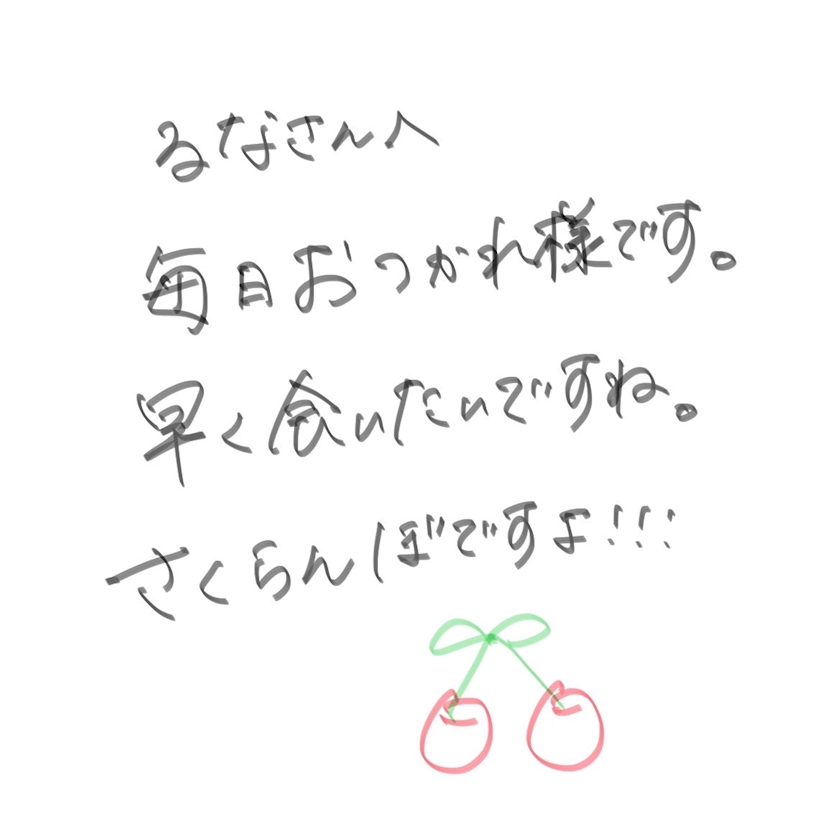 るなさんへ
毎日おつかれ様です。
早く会いたいですね。
さくらんぼですよ!!!